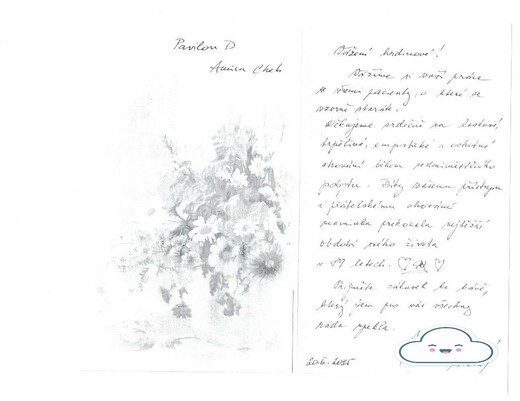 Pavilon D
Vážení hrdinové!
Vážíme si vaší práce
se všemi pacienty, o které se
vzorně staráte.
Děkujeme srdečně za laskavé,
trpělivé, empatické a ochotné
chování během
pobytu. Díky vašemu přístupu
a přátelskému chování
maminka překonala nejtěžší
období svého života
v 89 letech.
Přijměte zákusek ke kávě,
který jsem pro vás všechny
ráda upekla.